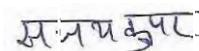 संजय कुमार